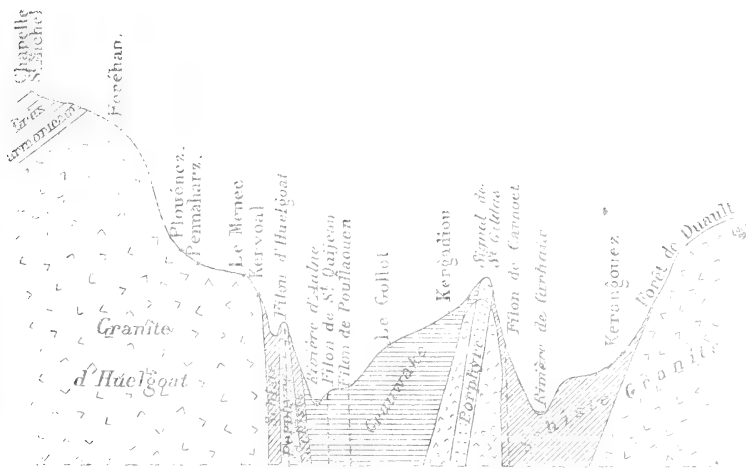 Chapelle
St Michel
Grès
armoricain
Feréhan.
Plouënez.
Pennaharz.
Le Menec
Kervoal
Filon d'Huelgoat
Rivière d'Aulne
Filon de St Quijeau
Filon de Poullaouen
Le Gollot
Kergadiou
Signal de
St Gildas
Filon de Carnoet
Rivière de Carhaix
Kerangouez
Forêt de Duault
Granite
d'Huelgoat
Schiste
Porphyre
Schiste
Grauwake
Porphyre
Schiste
Granite